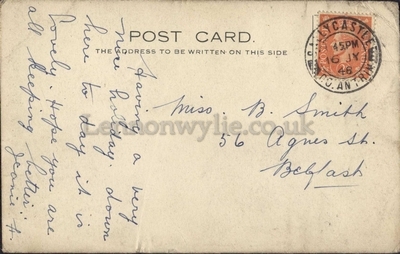 POST CARD.
THE ADDRESS TO BE WRITTEN ON THIS SIDE
BALLYCASTLE
45PM
16 JY
46
CO. ANTRIM
Miss. B. Smith
56 Agnes St.
Belfast
Having a very
nice holiday. down
here to day it is
lovely. Hope you are
all keeping better.
Jeanie
Lennonwylie.co.uk